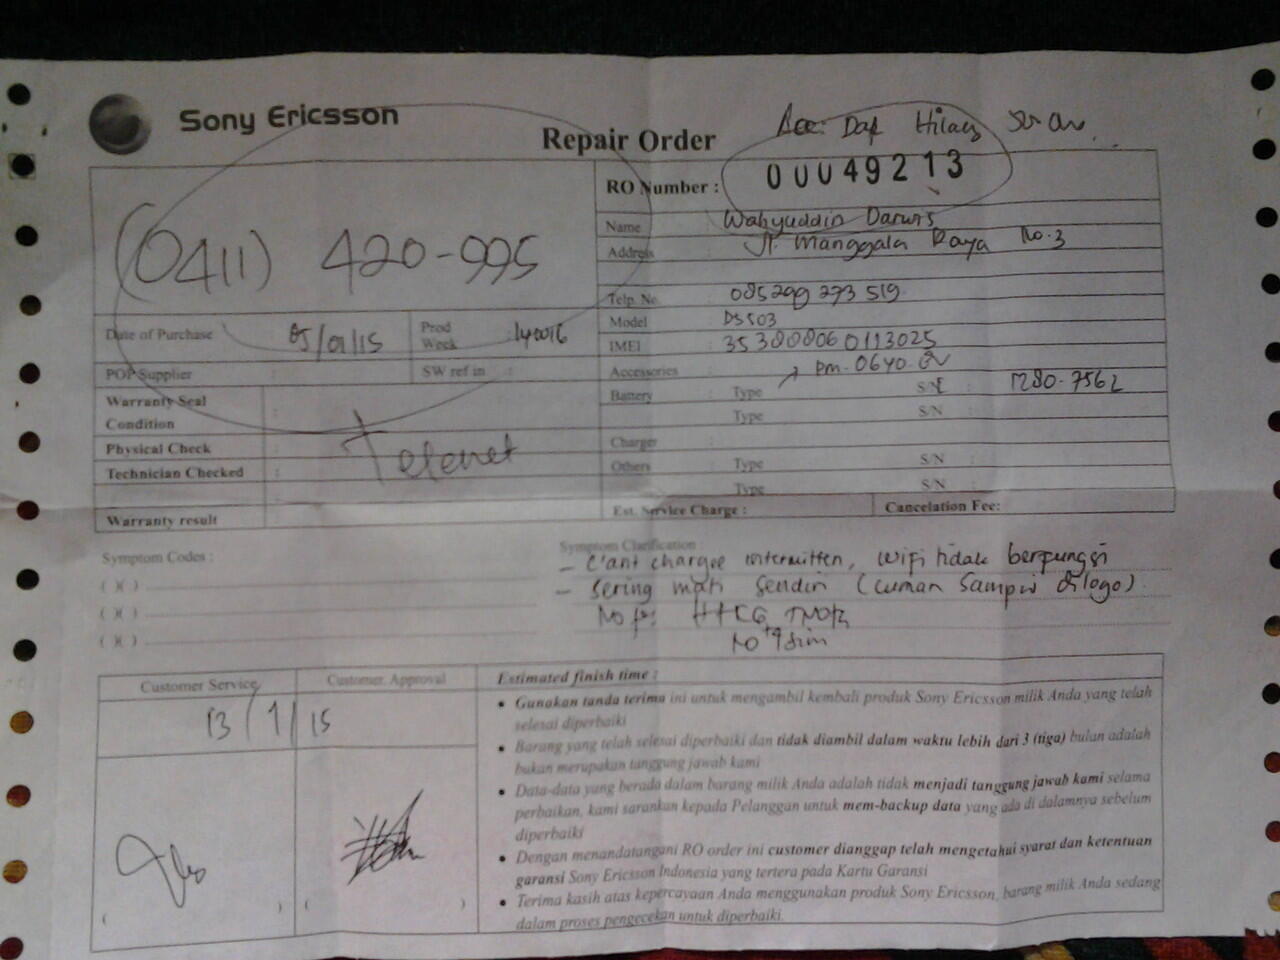 Sony Ericsson
Repair Order
RO Number : 00049213
Name Wahyuddin Darwis
Address Jl. Manggala Raya No.3
(0411) 420-995
Telp. No. 085299 273 519
Model D5503
IMEI 35380806 0113025
Date of Purchase : 05/01/15
Prod Week :
POP Supplier :
SW ref in :
Accessories : pm-0640.BV
Battery : Type S/N 1280-7562
Type S/N
Warranty Seal
Condition :
Physical Check :
Technician Checked :
Telenet
Charger :
Others : Type S/N
Type S/N
Est. Service Charge :
Cancelation Fee:
Warranty result
Symptom Codes :
( )( )
( )( )
( )( )
Symptom Clarification :
- C'ant charge intermitten, wifi tidak berfungsi
- Sering mati sendiri (cuman sampai di logo)
Customer Service
Customer Approval
13/1/15
Estimated finish time :
• Gunakan tanda terima ini untuk mengambil kembali produk Sony Ericsson milik Anda yang telah
selesai diperbaiki
• Barang yang telah selesai diperbaiki dan tidak diambil dalam waktu lebih dari 3 (tiga) bulan adalah
bukan merupakan tanggung jawab kami
• Data-data yang berada dalam barang milik Anda adalah tidak menjadi tanggung jawab kami selama
perbaikan, kami sarankan kepada Pelanggan untuk mem-backup data yang ada di dalamnya sebelum
diperbaiki
• Dengan menandatangani RO order ini customer dianggap telah mengetahui syarat dan ketentuan
garansi Sony Ericsson Indonesia yang tertera pada Kartu Garansi
• Terima kasih atas kepercayaan Anda menggunakan produk Sony Ericsson, barang milik Anda sedang
dalam proses pengecekan untuk diperbaiki.